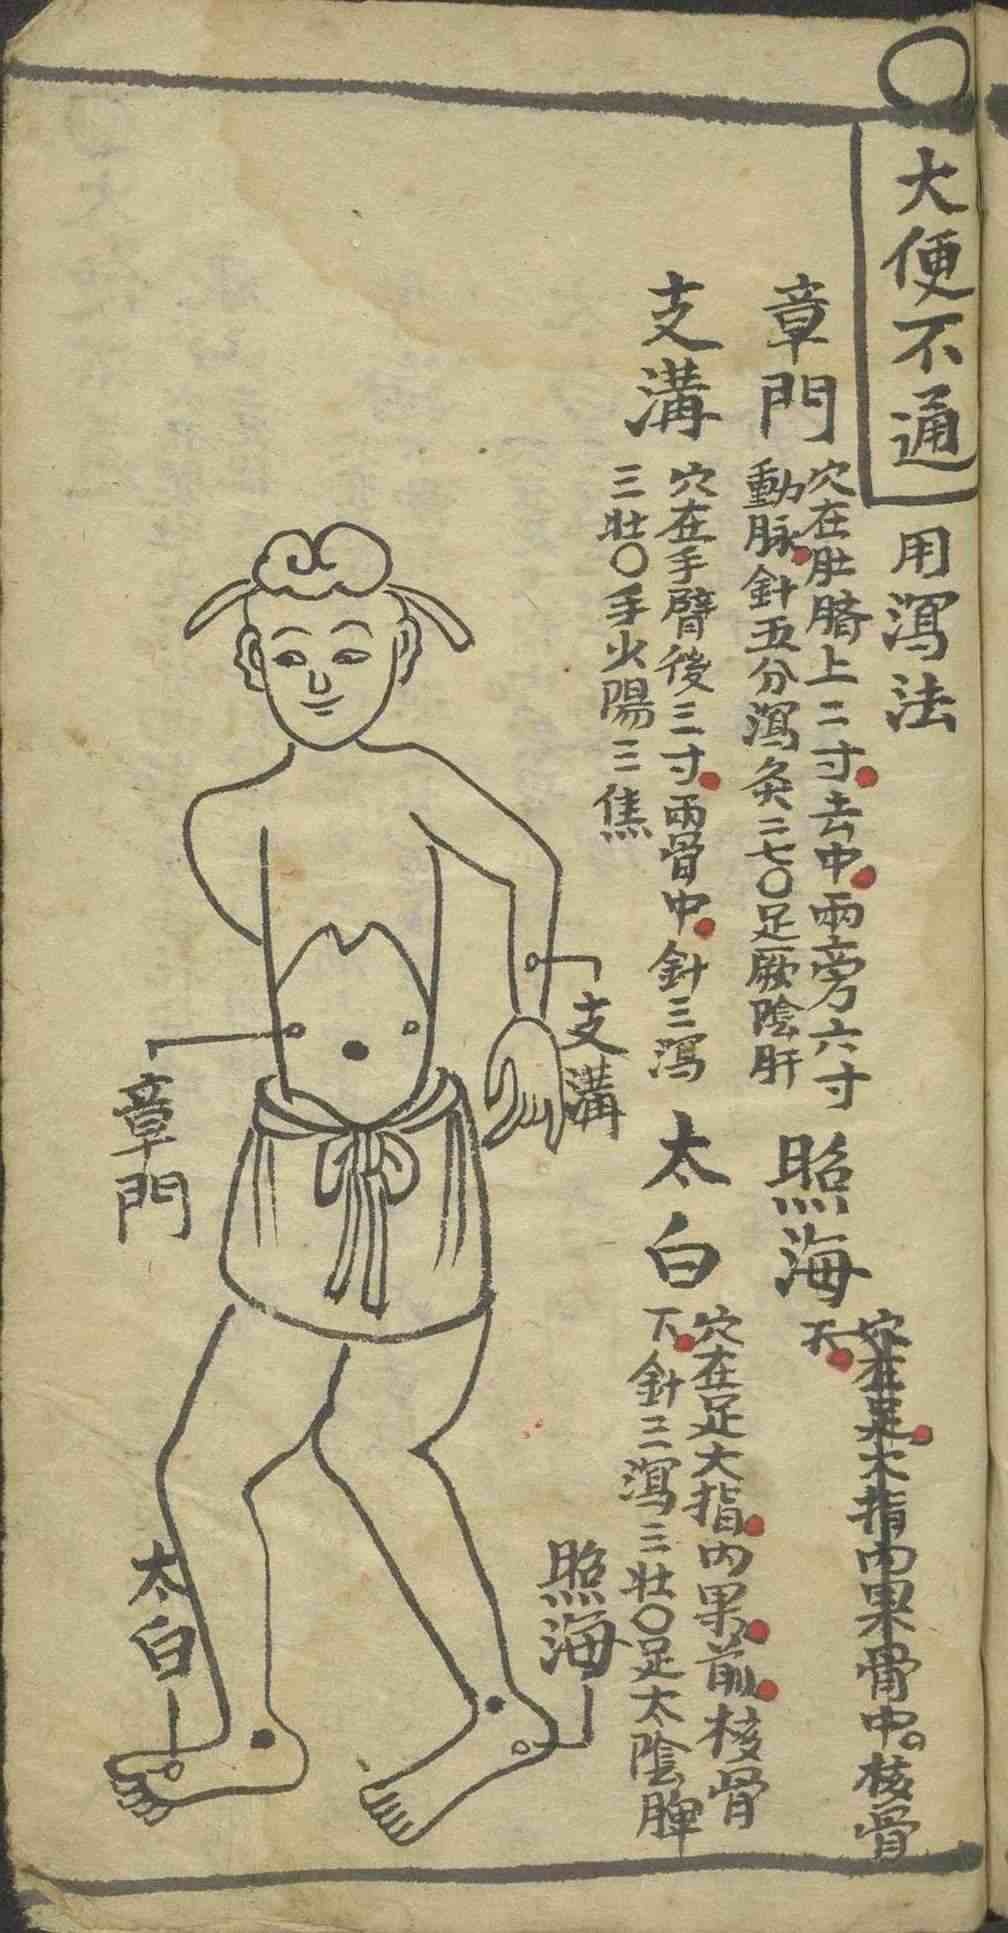 大便不通
用瀉法
章門
穴在肚臍上二寸去中兩旁六寸
動脉針五分瀉灸二七〇足厥陰肝
照海
穴在足大指內果骨中核骨
下
支溝
穴在手臂後三寸兩骨中針三瀉
三壯〇手火陽三焦
太白
穴在足大指內果前核骨
下針三瀉三壯〇足太陰脾
支溝
章門
照海
太白